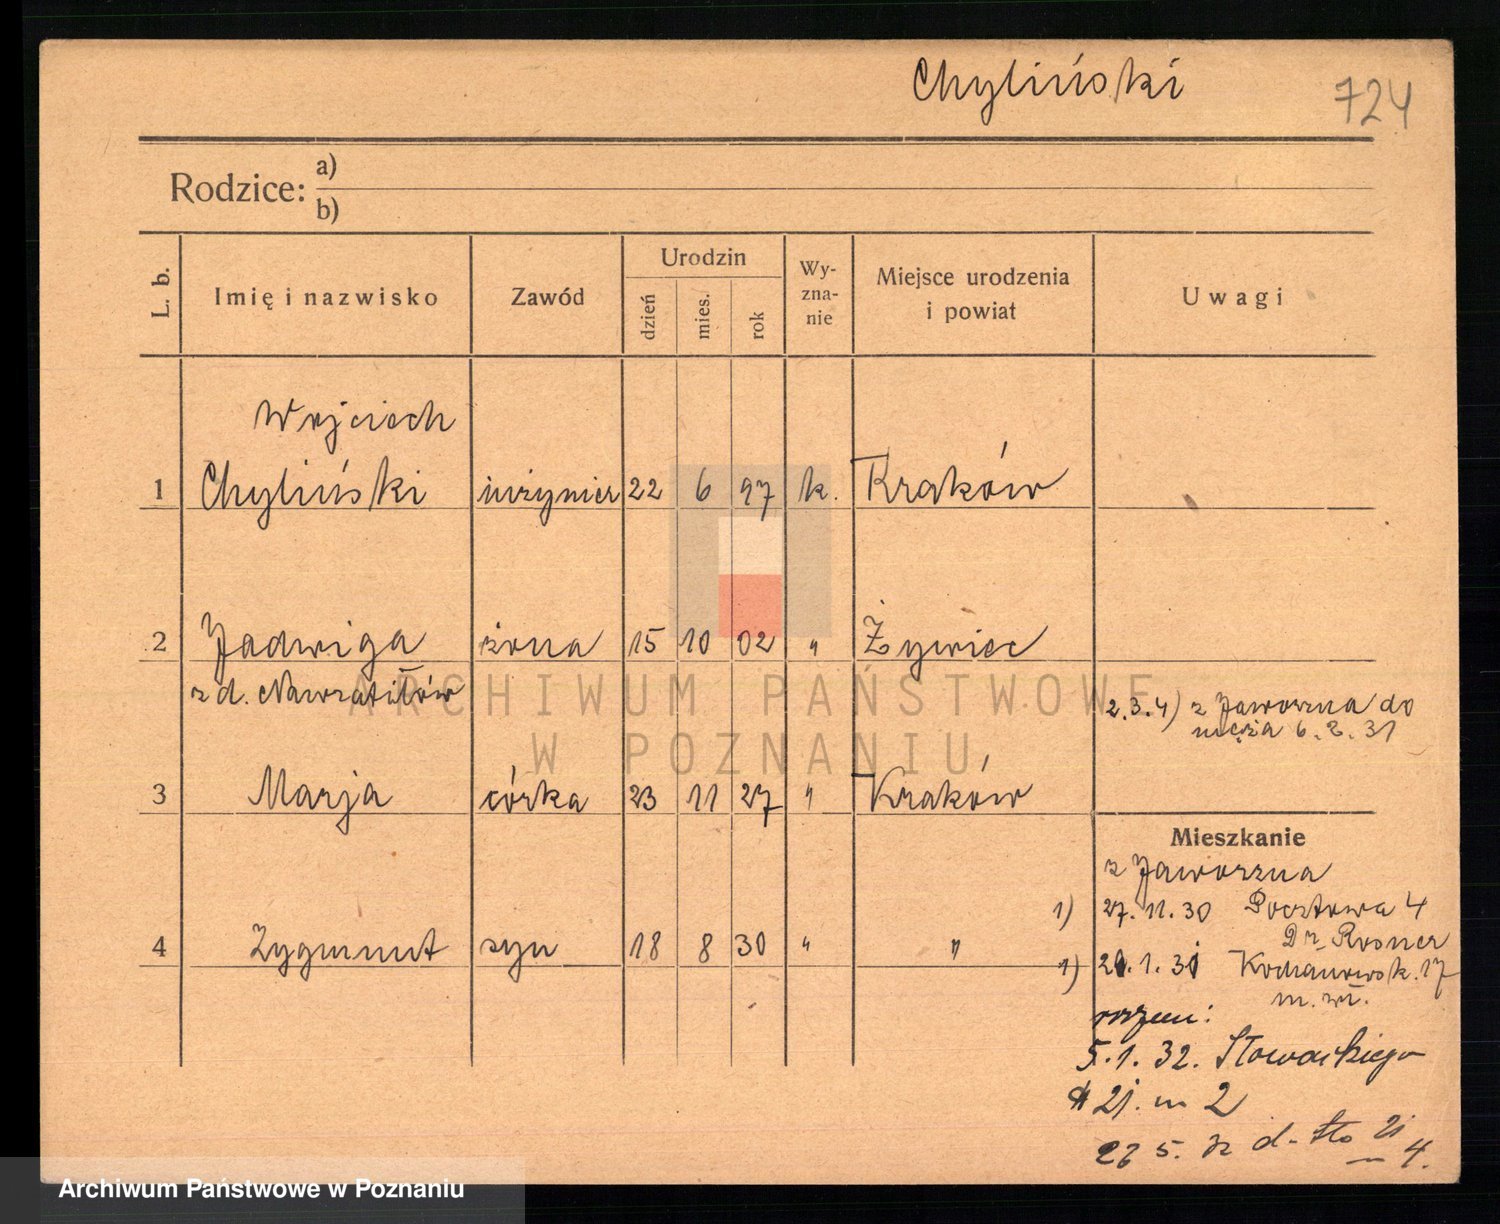 Chyliński 724
Rodzice: a)
b)
L. b. Imię i nazwisko Zawód Urodzin dzień mies. rok Wy-zna-nie Miejsce urodzenia i powiat Uwagi
Wojciech
1 Chyliński inżynier 22 6 97 k. Kraków
2 Jadwiga żona 15 10 02 " Żywiec
z d. Nawratiłów
2.3.4) z Jaworzna do
męża 6. 2. 31
ARCHIWUM PAŃSTWOWE
W POZNANIU
3 Marja córka 23 11 27 " Kraków
Mieszkanie
z Jaworzna
1) 27. 11. 30 Pocztowa 4
Dr. Rosner
4 Zygmunt syn 18 8 30 " "
1) 1. 31 17
m. wł.
razem:
5. 1. 32. Słowackiego
21. m 2
5. 4.
Archiwum Państwowe w Poznaniu